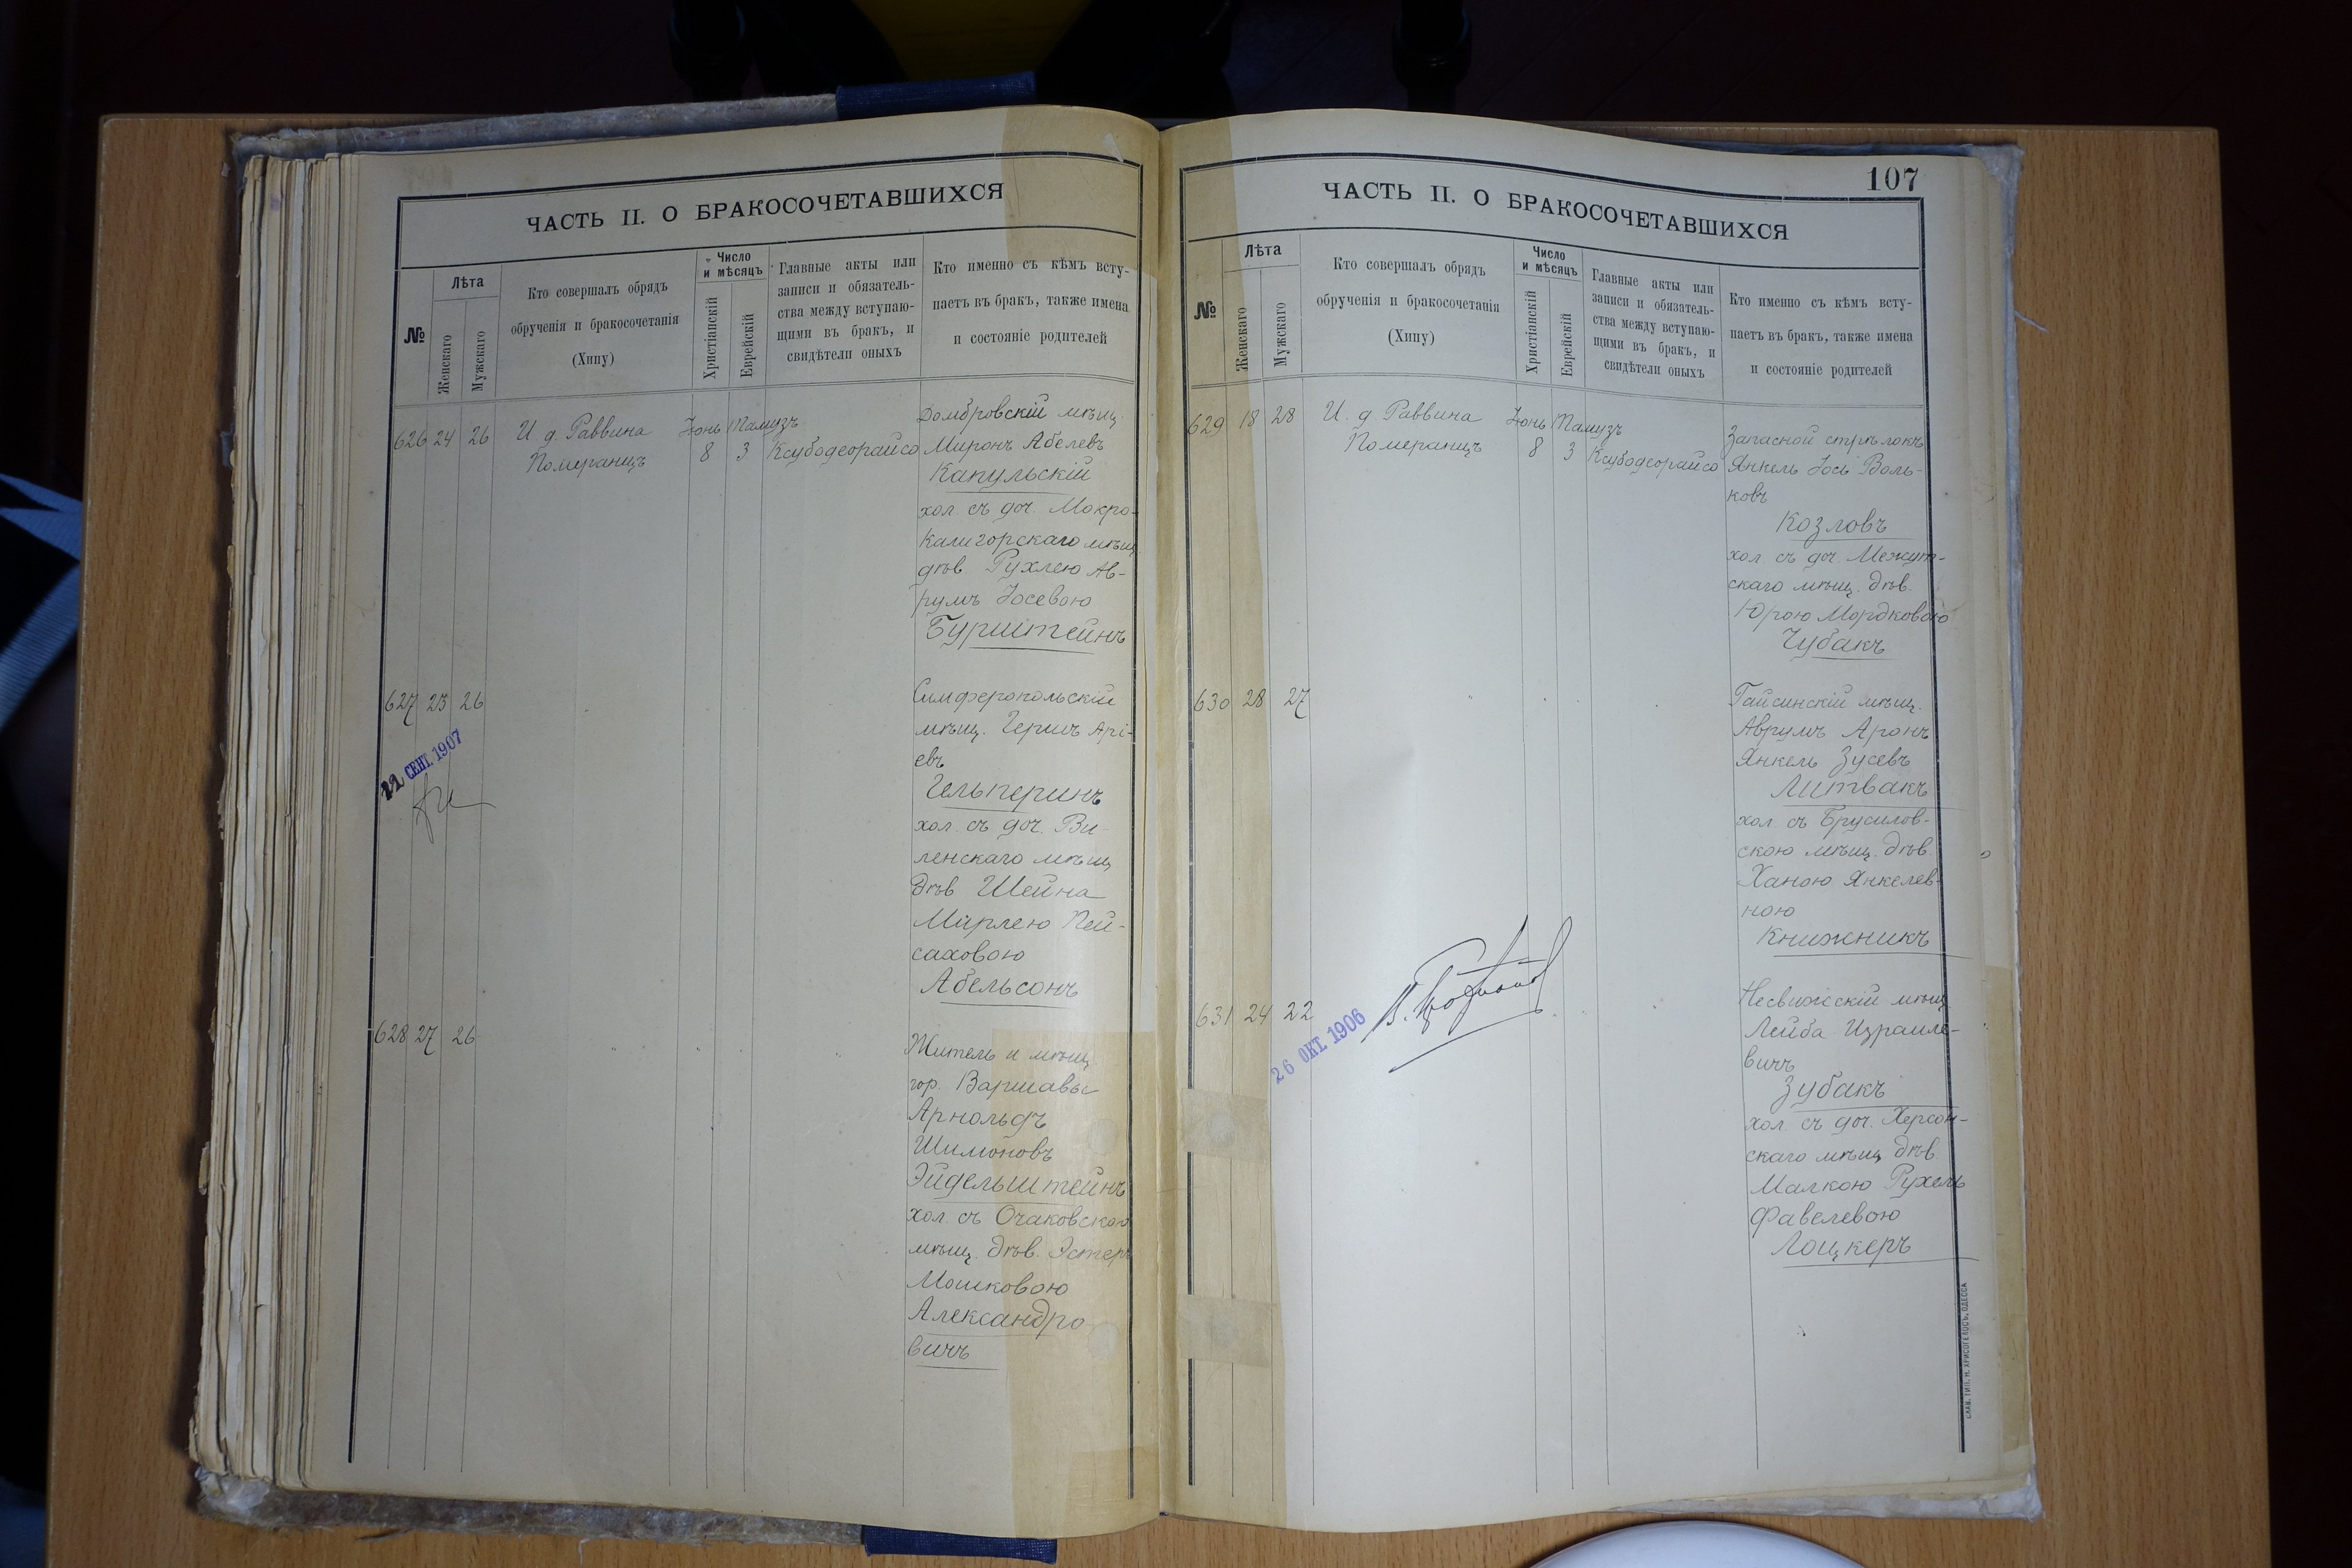 ЧАСТЬ II. О БРАКОСОЧЕТАВШИХСЯ
№
Лѣта
Женскаго
Мужскаго
Кто совершалъ обрядъ
обрученія и бракосочетанія
(Хипу)
Число
и мѣсяцъ
Христіанскій
Еврейскій
Главные акты или
записи и обязатель-
ства между вступаю-
щими въ бракъ, и
свидѣтели оныхъ
Кто именно съ кѣмъ всту-
паетъ въ бракъ, также имена
и состояніе родителей
626 24 26
И. д. Раввина
Померанцъ
Іюнь
8
Тамузъ
3
Ксубодеорайсо
Домбровскій мѣщ.
Миронъ Абелевъ
Капульскій
хол. съ доч. Мокро-
Калигорскаго мѣщ.
дѣв. Рухлею Ав-
румъ Іосевою
Бурштейнъ
627 23 26
11 СЕНТ. 1907
Симферопольскій
мѣщ. Гершъ Арі-
евъ
Гельперинъ
хол. съ доч. Ви-
ленскаго мѣщ.
дѣв Шейна
Мирлею Пей-
саховою
Абельсонъ
628 27 26
Житель и мѣщ.
гор. Варшавы
Арнольдъ
Шимоновъ
Эйдельштейнъ
хол. съ Очаковскою
мѣщ. дѣв. Эстеръ
Мошковою
Александро-
вичъ
107
ЧАСТЬ II. О БРАКОСОЧЕТАВШИХСЯ
№
Лѣта
Женскаго
Мужскаго
Кто совершалъ обрядъ
обрученія и бракосочетанія
(Хипу)
Число
и мѣсяцъ
Христіанскій
Еврейскій
Главные акты или
записи и обязатель-
ства между вступаю-
щими въ бракъ, и
свидѣтели оныхъ
Кто именно съ кѣмъ всту-
паетъ въ бракъ, также имена
и состояніе родителей
629 18 28
И. д Раввина
Померанцъ
Іюнь
8
Тамузъ
3
Ксубодеорайсо
Запасной стрѣлокъ
Янкель Іось Воль-
ковъ
Козловъ
хол. съ доч.
скаго мѣщ. дѣв.
Юрою Мордковою
Чубакъ
630 28 27
Гайсинскій мѣщ.
Аврумъ Аронъ
Янкель Зусевъ
Литвакъ
хол. съ Брусилов-
скою мѣщ. дѣв.
Ханою Янкелев-
ною
Книжникъ
631 24 22
26 ОКТ. 1906
Несвижскій мѣщ.
Лейба Израиле-
вичъ
Зубакъ
хол. съ доч. Херсон-
скаго мѣщ. дѣв.
Малкою Рухель
Фавелевою
Лоцкеръ
СКЛ. ТИП. Н. ХРИСОГЕЛОСЪ, ОДЕССА